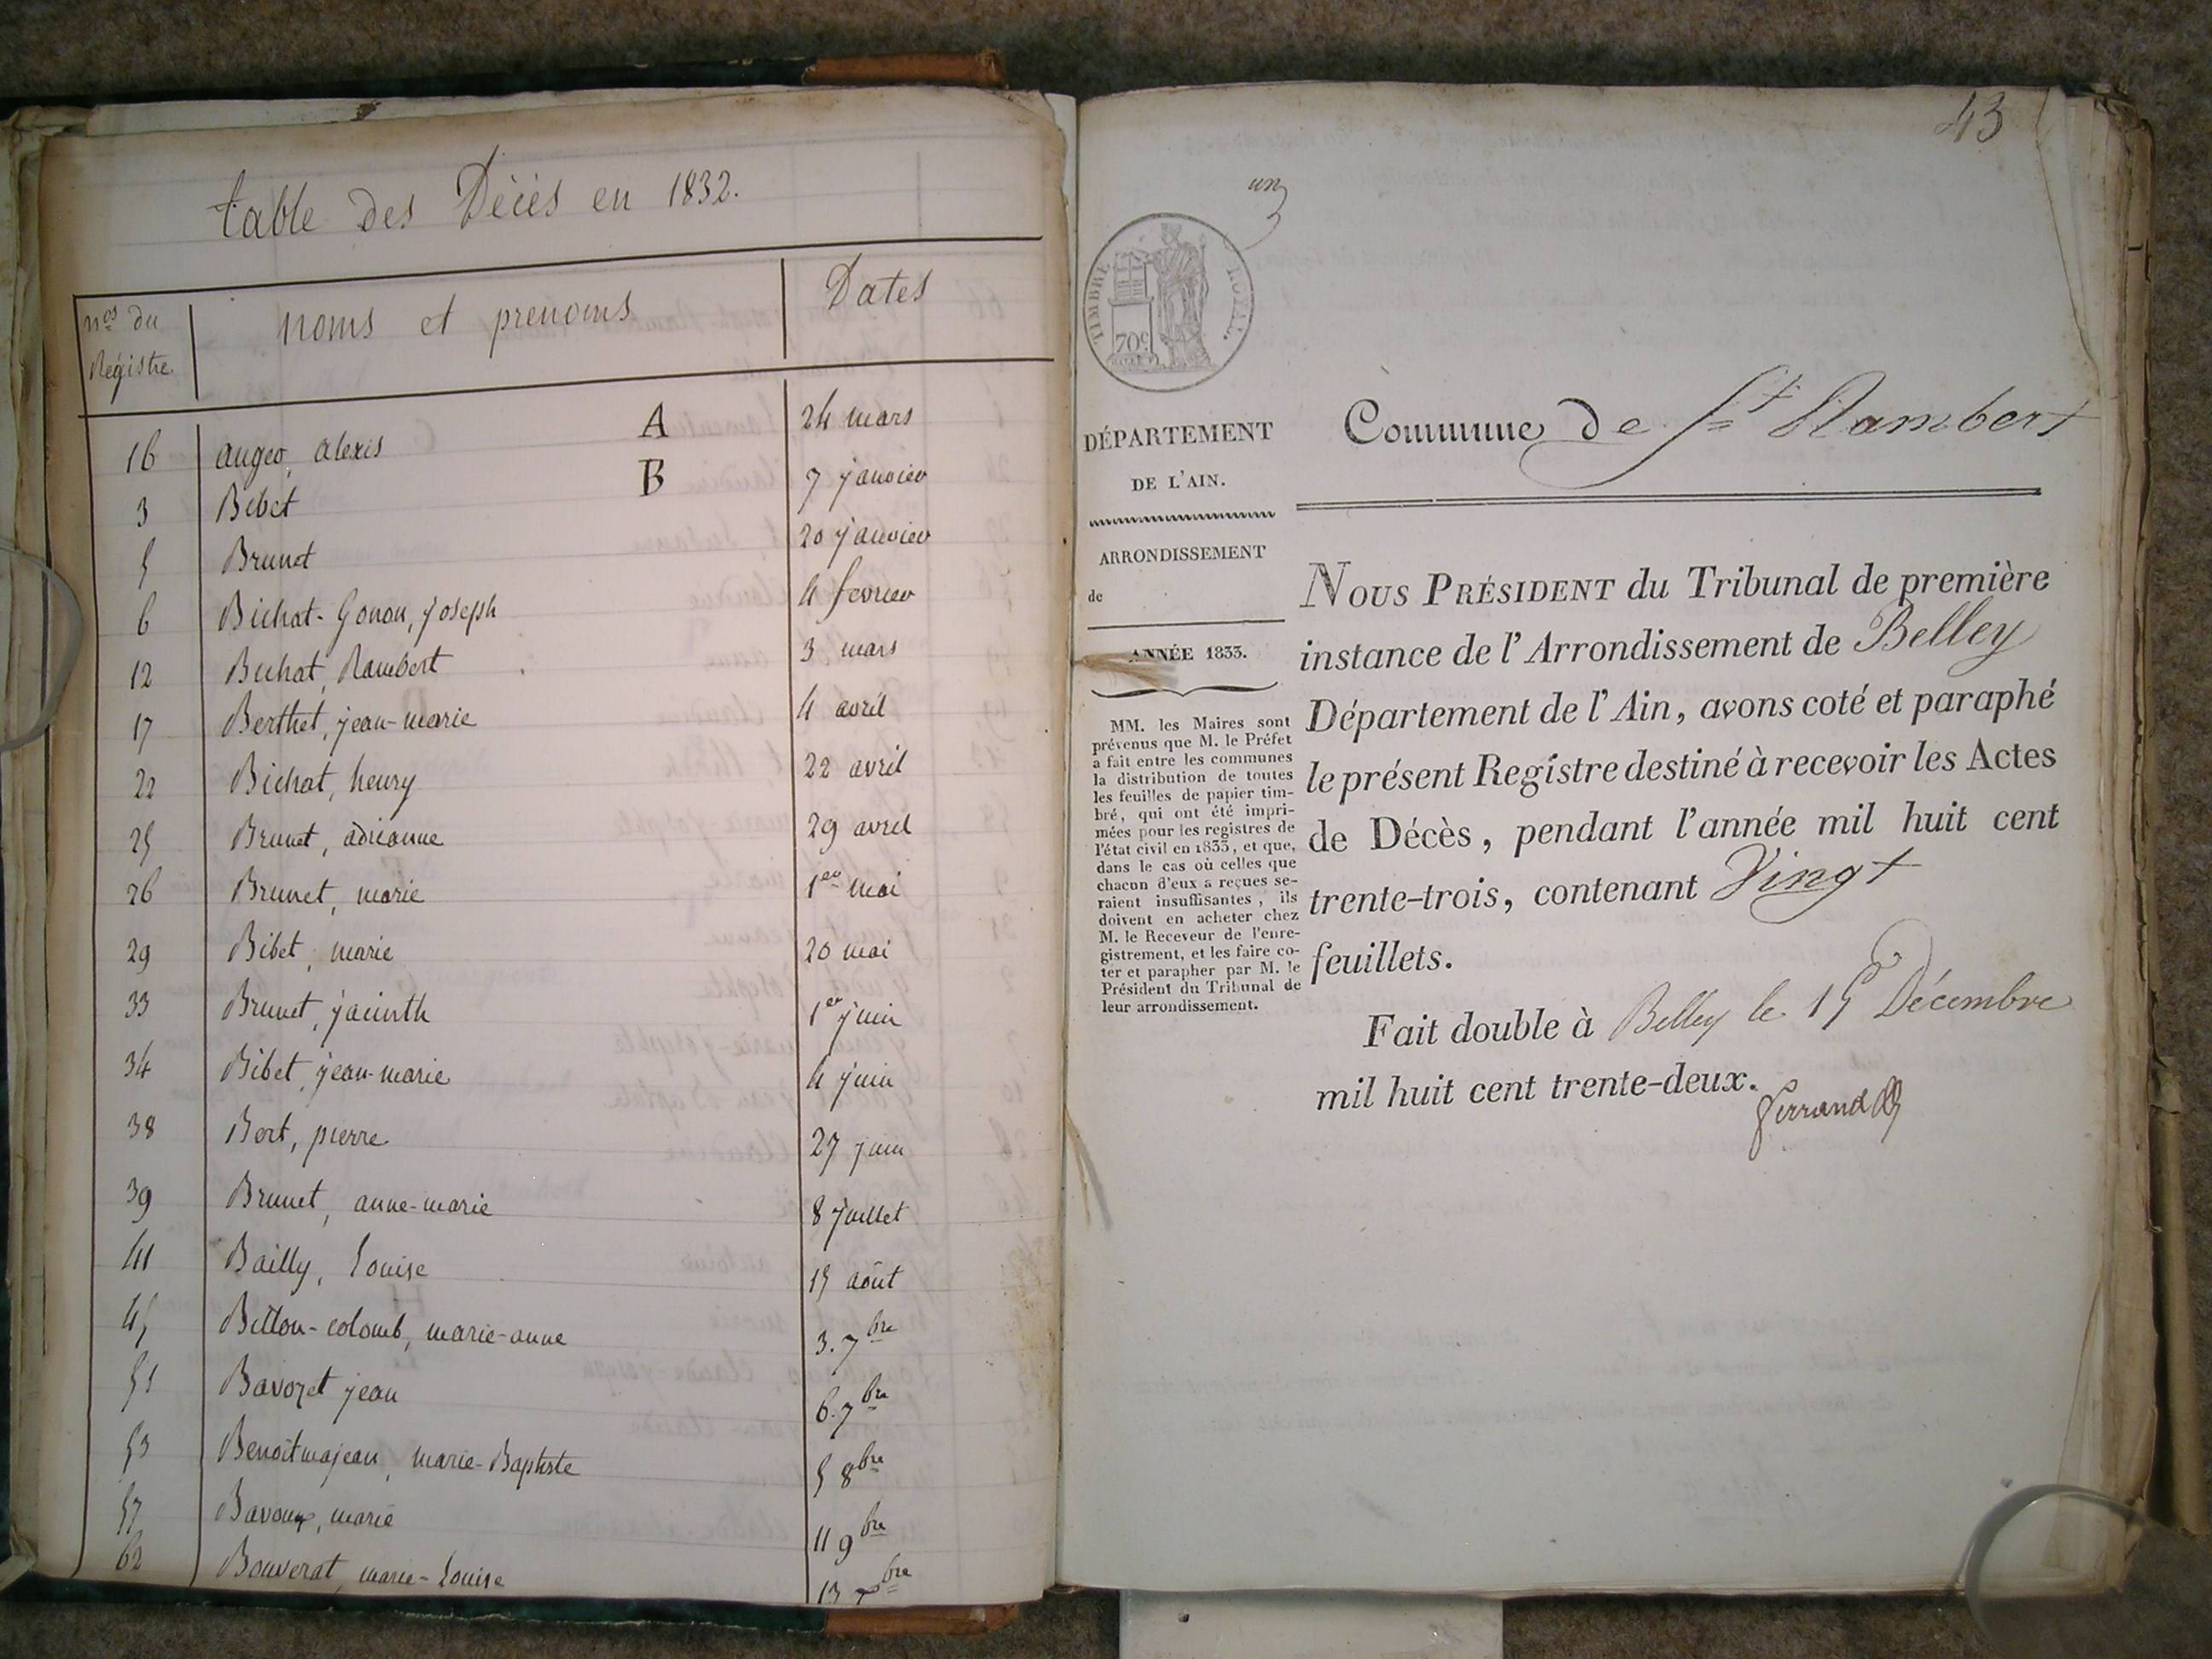 table des Décès en 1832.
nos du Régistre
noms et prenoms
Dates
A
16 auger, alexis 24 mars
B
3 Bibet 7 janvier
5 Brunet 20 janvier
6 Bichat-Gonon, joseph 4 fevrier
12 Bichat, Rambert 3 mars
17 Berthet, jean-marie 4 avril
22 Bichat, henry 22 avril
25 Brunet, adrianne 29 avril
26 Brunet, marie 1er mai
29 Bibet, marie 20 mai
33 Brunet, jacinth 1er juin
34 Bibet, jean-marie 4 juin
38 Bort, pierre 27 juin
39 Brunet, anne-marie 8 juillet
41 Bailly, Louise 15 août
45 Billon-colomb, marie-anne 3. 7bre
51 Bavozet jean 6. 7bre
53 Benoitmajean, marie-Baptiste 5 8bre
57 Bavoux, marie 11 9bre
62 Bouverat, marie-Louise 13 xbre
43
un
TIMBRE ROYAL.
70c
DÉPARTEMENT
DE L'AIN.
ARRONDISSEMENT
de
ANNÉE 1833.
MM. les Maires sont
prévenus que M. le Préfet
a fait entre les communes
la distribution de toutes
les feuilles de papier tim-
bré, qui ont été impri-
mées pour les registres de
l'état civil en 1833, et que,
dans le cas où celles que
chacun d'eux a reçues se-
raient insuffisantes, ils
doivent en acheter chez
M. le Receveur de l'enre-
gistrement, et les faire co-
ter et parapher par M. le
Président du Tribunal de
leur arrondissement.
Commune de St Rambert
NOUS PRÉSIDENT du Tribunal de première
instance de l'Arrondissement de Belley
Département de l'Ain, avons coté et paraphé
le présent Registre destiné à recevoir les Actes
de Décès, pendant l'année mil huit cent
trente-trois, contenant Vingt
feuillets.
Fait double à Belley le 15 Décembre
mil huit cent trente-deux.